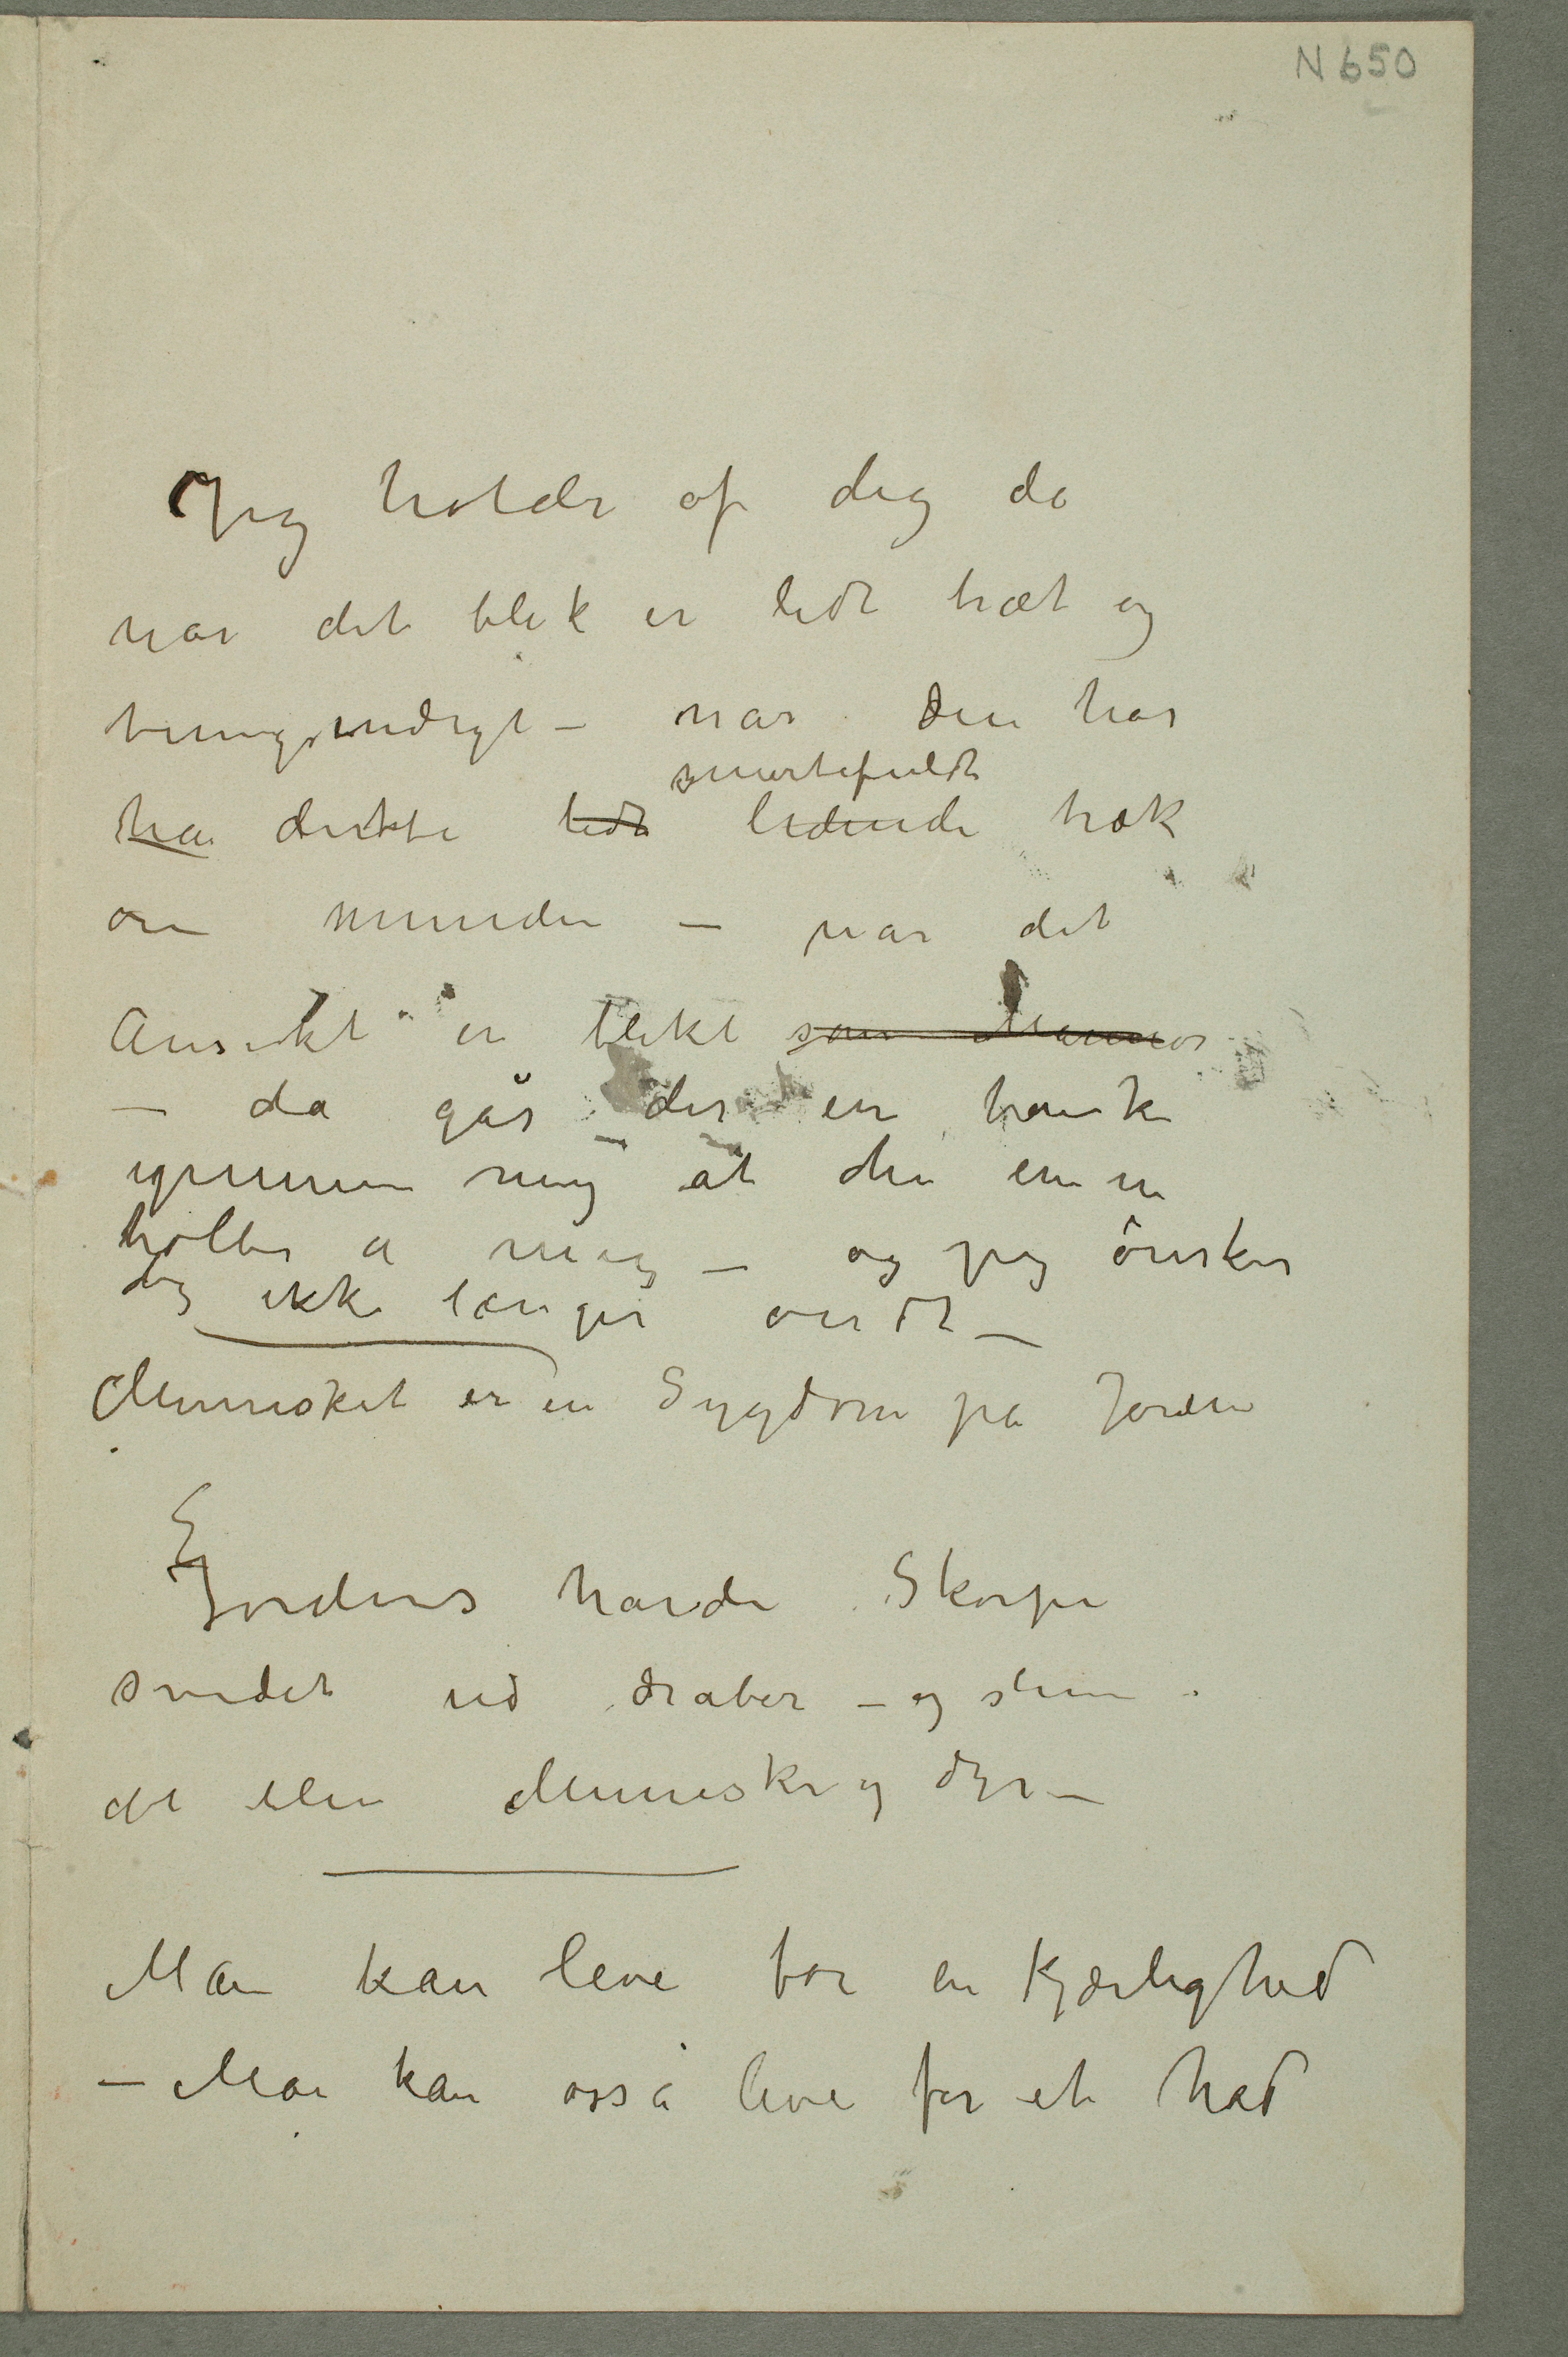 N 650
Jeg holder af dig da
når dit blik er lidt træt og
tungsindigt – når du har
smertefuldt
har dette lidt lidende træk
om munden – når dit
Ansikt er blekt som Marmor
– da går der en tanke
igjennem mig at du en
holder a mig – og jeg ønsker
dig ikke længer ondt –
Mennesket er en Sygdom på Jorden
Jordens hårde Skorpe
svedet ud dråber – og
det blev Mennesker og dyr –
Man kan leve for en Kjærlighed
– Man kan osså leve for et had